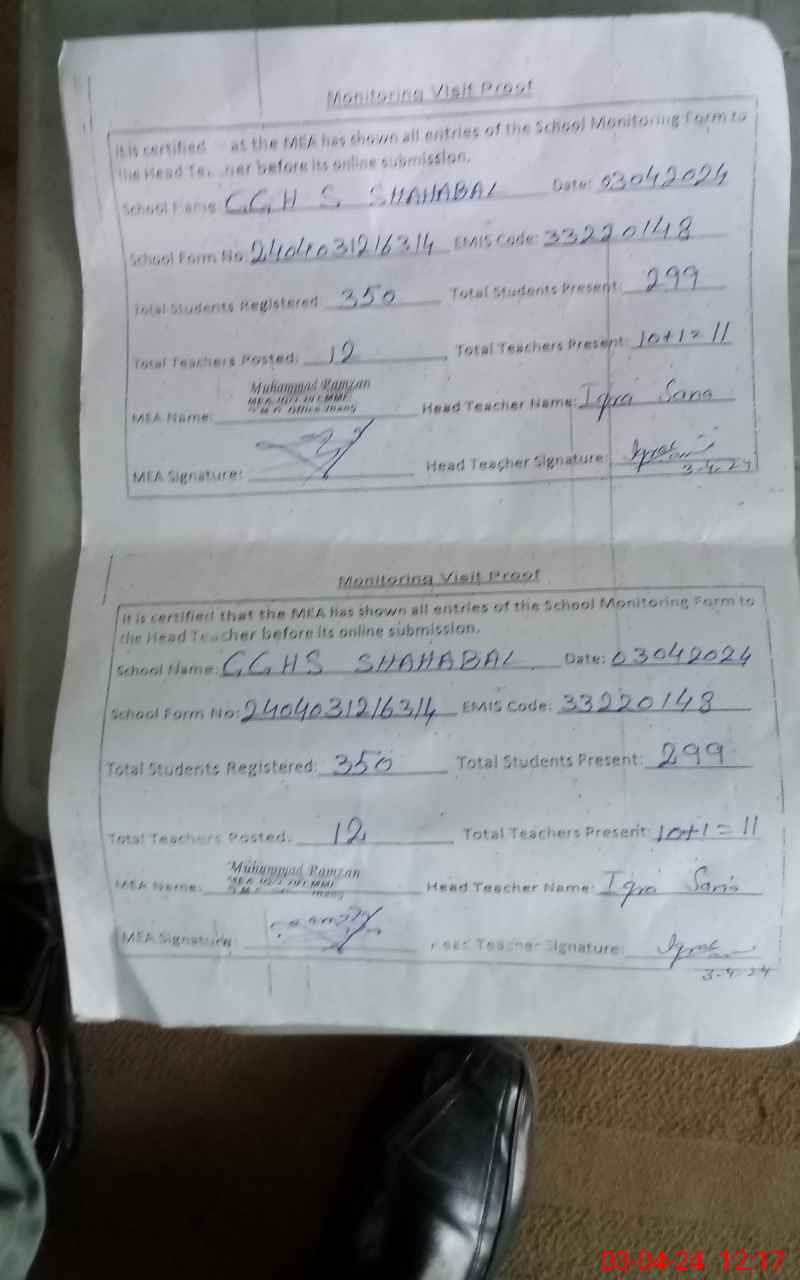 Monitoring Visit Proof
It is certified at the MEA has shown all entries of the School Monitoring Form to
the Head Teacher before its online submission.
School Name: GGHS SHAHABAL Date: 03042024
School Form No: 2404031216314 EMIS Code: 33220148
Total Students Registered: 350 Total Students Present: 299
Total Teachers Posted: 12 Total Teachers Present: 10+1=11
Muhammad Ramzan
MEA Name: Head Teacher Name: Iqra Sana
MEA Signature: Head Teacher Signature: Iqra
3-4-24
Monitoring Visit Proof
It is certified that the MEA has shown all entries of the School Monitoring Form to
the Head Teacher before its online submission.
School Name: GGHS SHAHABAL Date: 03042024
School Form No: 2404031216314 EMIS Code: 33220148
Total Students Registered: 350 Total Students Present: 299
Total Teachers Posted: 12 Total Teachers Present: 10+1=11
Muhammad Ramzan
MEA Name: Head Teacher Name: Iqra Sana
MEA Signature: Head Teacher Signature: Iqra
3-4-24
03-04-24 12:17